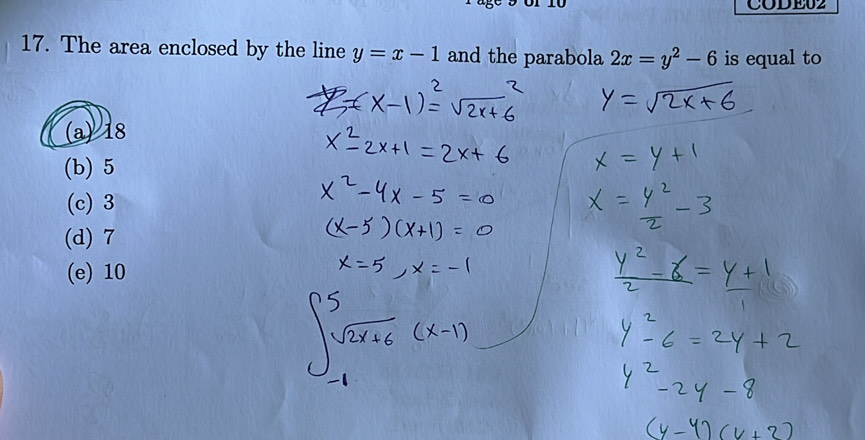 Page 9 of 10
CODE02
17. The area enclosed by the line y = x − 1 and the parabola 2x = y² − 6 is equal to
(a) 18
(b) 5
(c) 3
(d) 7
(e) 10
(x-1)² = √2x+6²
x² - 2x+1 = 2x+ 6
x² - 4x - 5 = 0
(x-5)(x+1) = 0
x=5, x=-1
∫₋₁⁵ √2x+6 (x-1)
y = √2x+6
x = y+1
x = y²/2 - 3
y²/2 - 3 = y+1/1
y² - 6 = 2y + 2
y² - 2y - 8
(y-4)(y+2)